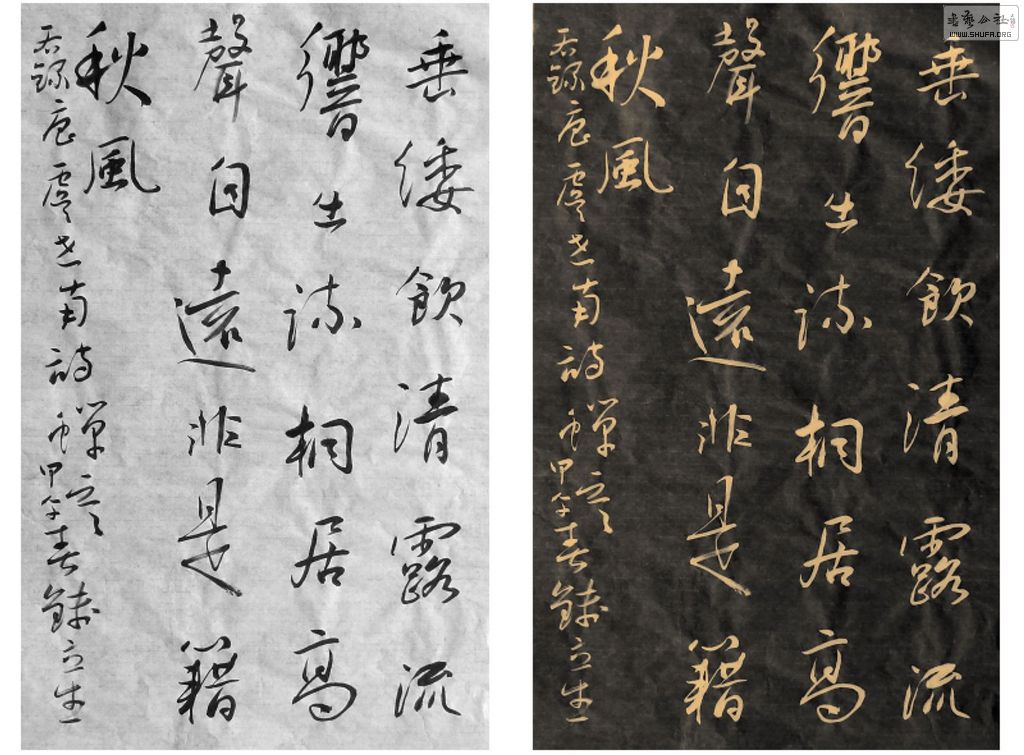 垂緌飲清露流
響出疏桐居高
聲自遠非是籍
秋風
右錄唐虞世南詩蟬
甲午春錢立生
書藝公社
WWW.SHUFA.ORG
垂緌飲清露流
響出疏桐居高
聲自遠非是籍
秋風
右錄唐虞世南詩蟬
甲午春錢立生